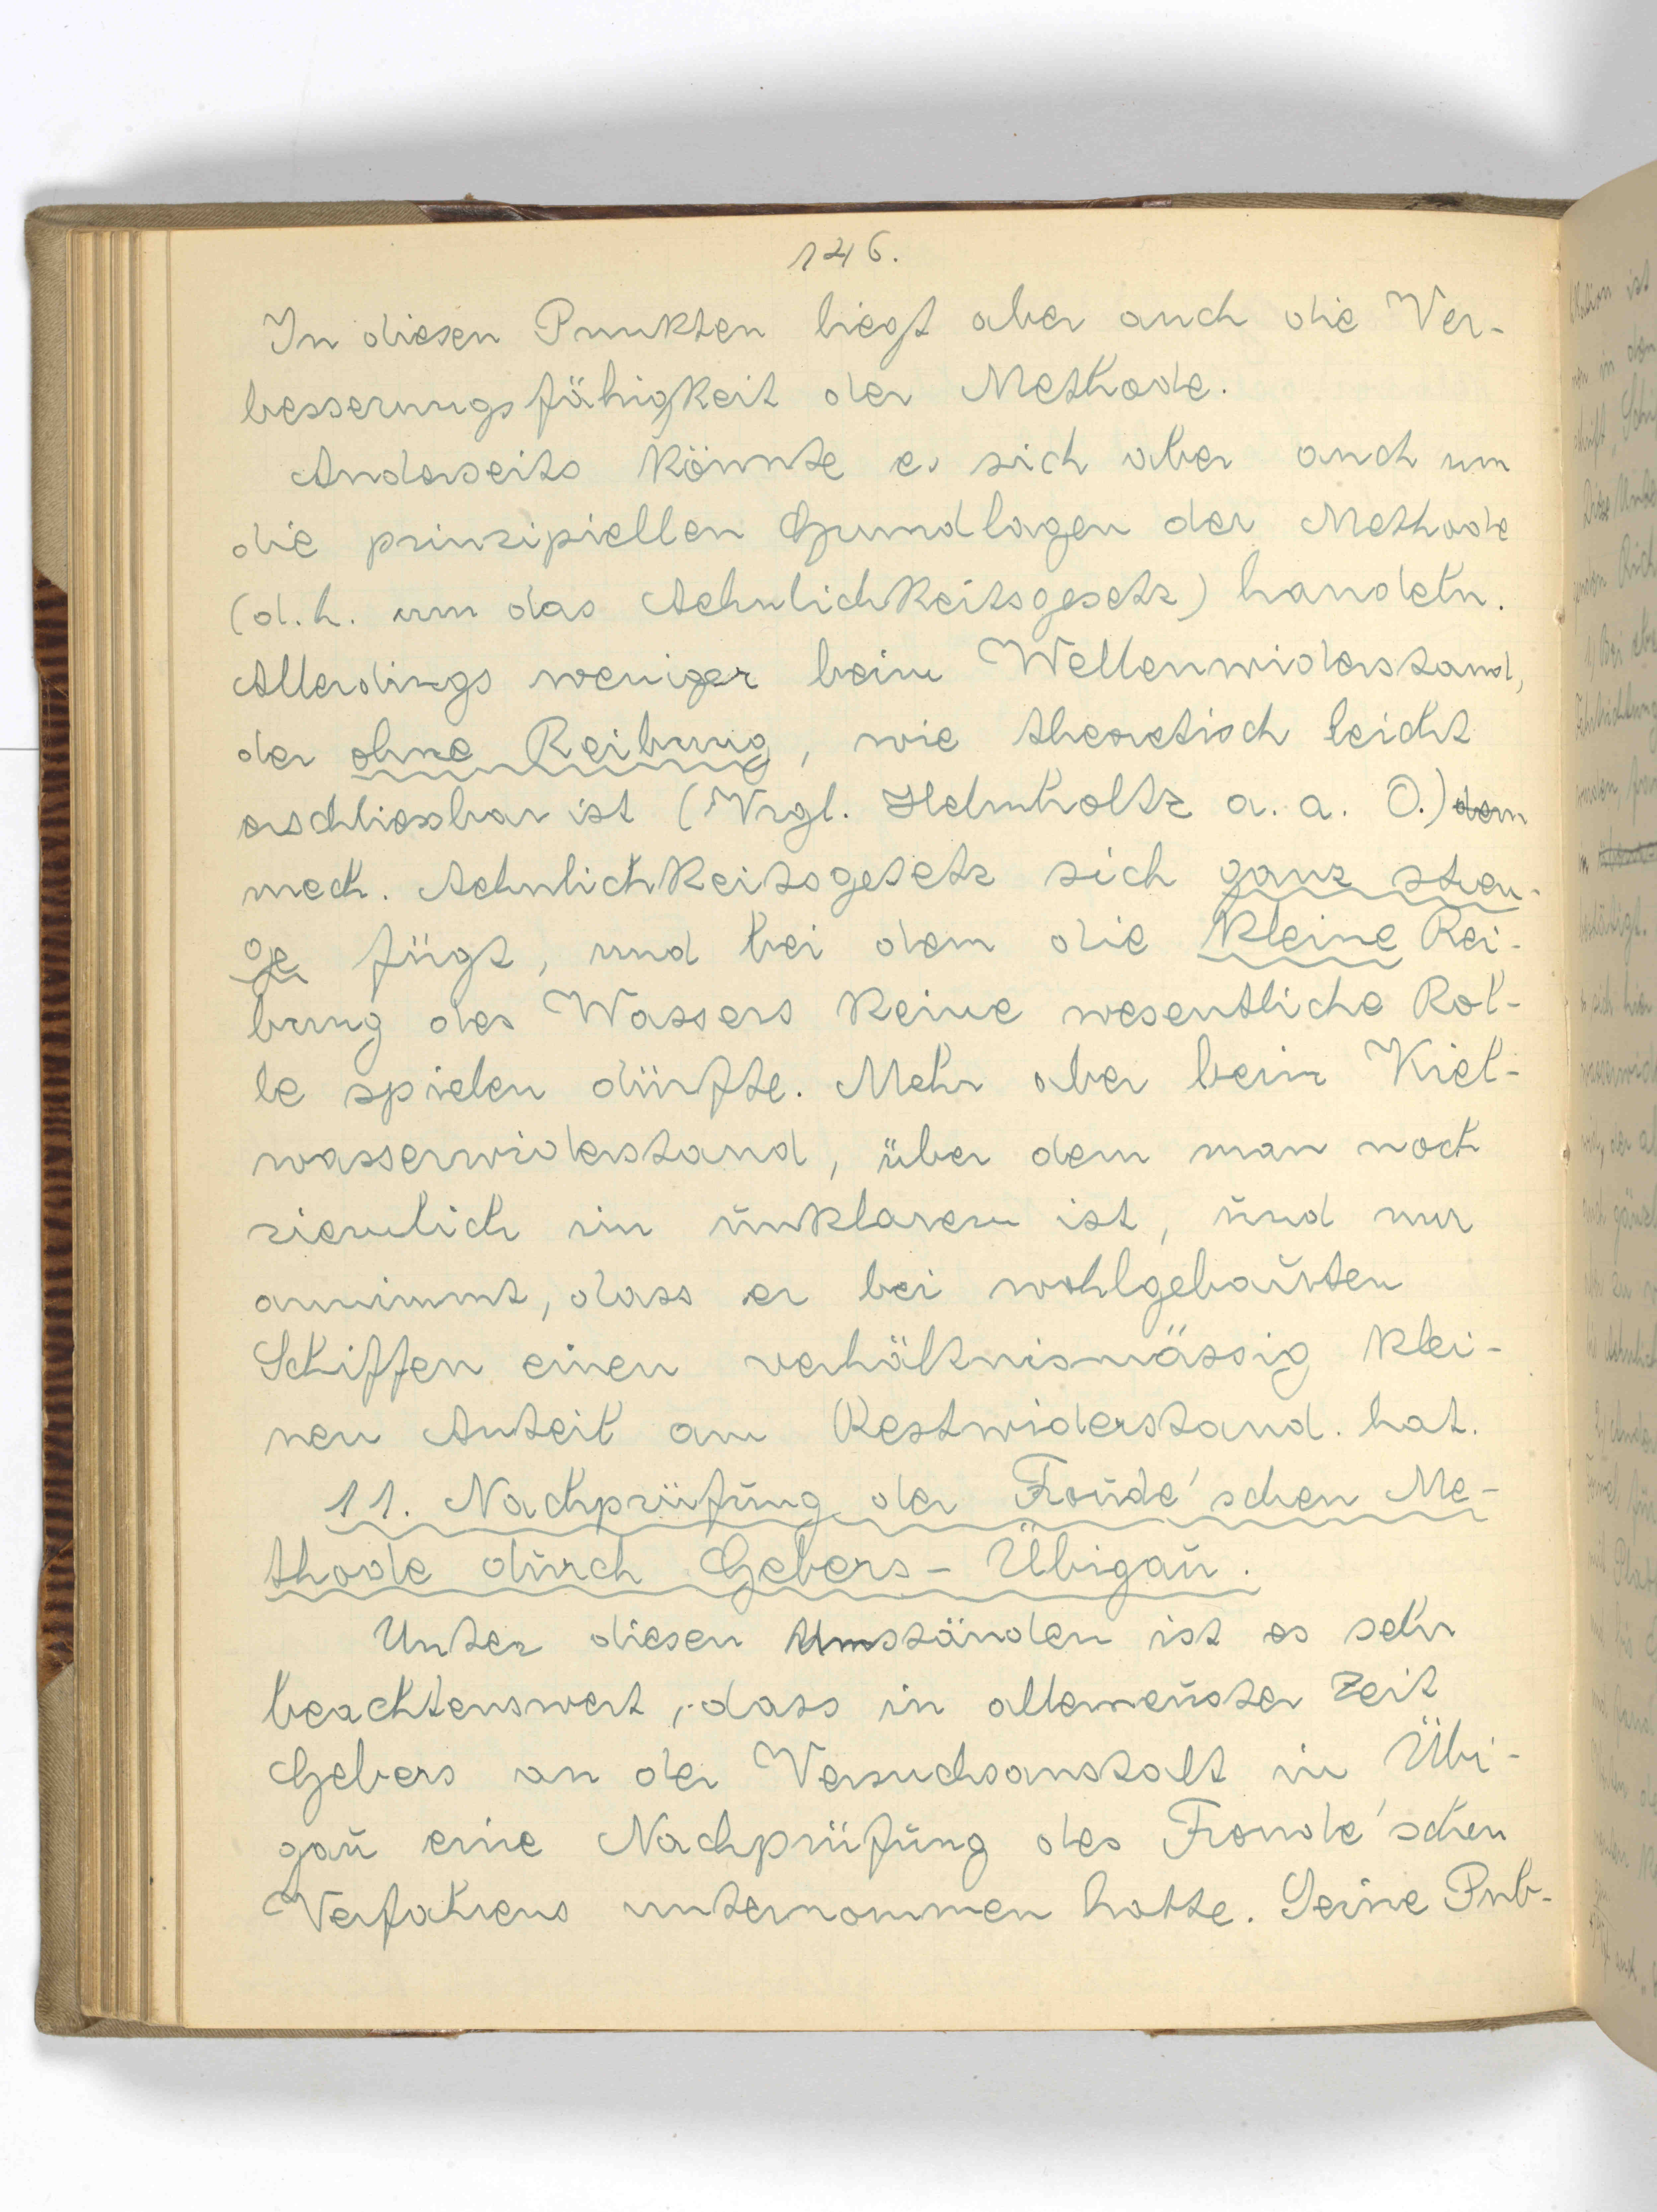 146.
In diesen Punkten liegt aber auch die Ver-
besserungsfähigkeit der Methode.
Anderseits könnte es sich aber auch um
die prinzipiellen Grundlagen der Methode
(d. h. um das Aehnlichkeitsgesetz) handeln.
Allerdings weniger beim Wellenwiderstand,
der ohne Reibung, wie theoretisch leicht
erschliessbar ist (Vrgl. Helmholtz a. a. O.) dem
mech. Aehnlichkeitsgesetz sich ganz stren-
ge fügt, und bei dem die kleine Rei-
bung des Wassers keine wesentliche Rol-
le spielen dürfte. Mehr aber beim Kiel-
wasserwiderstand, über dem man noch
ziemlich im unklaren ist, und nur
annimmt, dass er bei wohlgebauten
Schiffen einen verhältnismässig klei-
nen Anteil am Restwiderstand. hat.
11. Nachprüfung der Froude'schen Me-
thode durch Gebers - Übigau.
Unter diesen Umständen ist es sehr
beachtenswert, dass in allerneuster Zeit
Gebers an der Versuchsanstalt in Übi-
gau eine Nachprüfung des Froude'schen
Verfahrens unternommen hatte. Seine Pub-